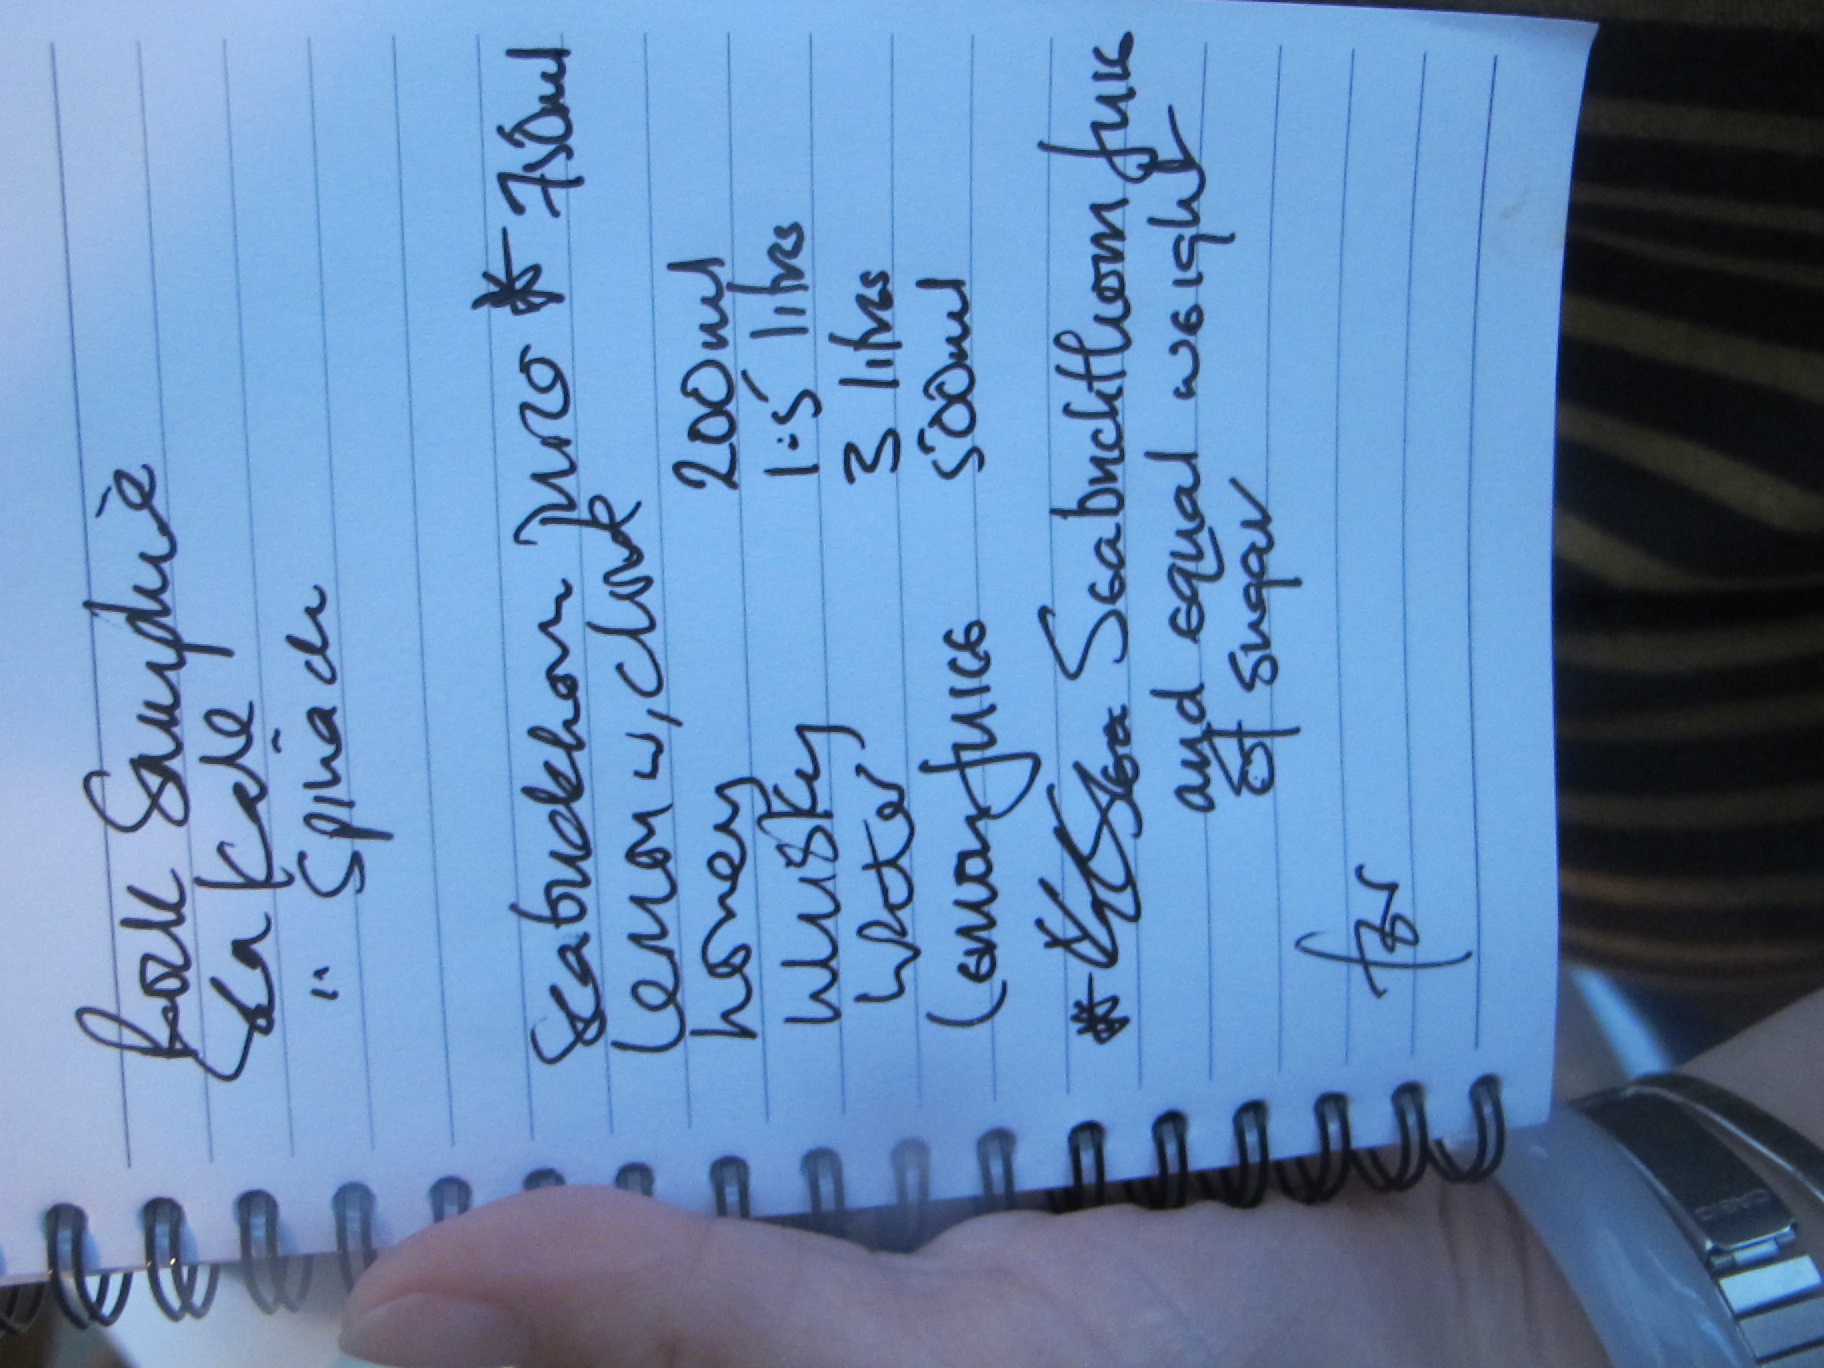 Rock Samphire
Sea Kale
" Spinach
Seabuckthorn juice * 750ml
Lemon
honey 200ml
Whisky 1.5 litres
Water 3 litres
Lemon juice 500ml
* Sea Seabuckthorn juice
and equal weight
of sugar
for
CASIO